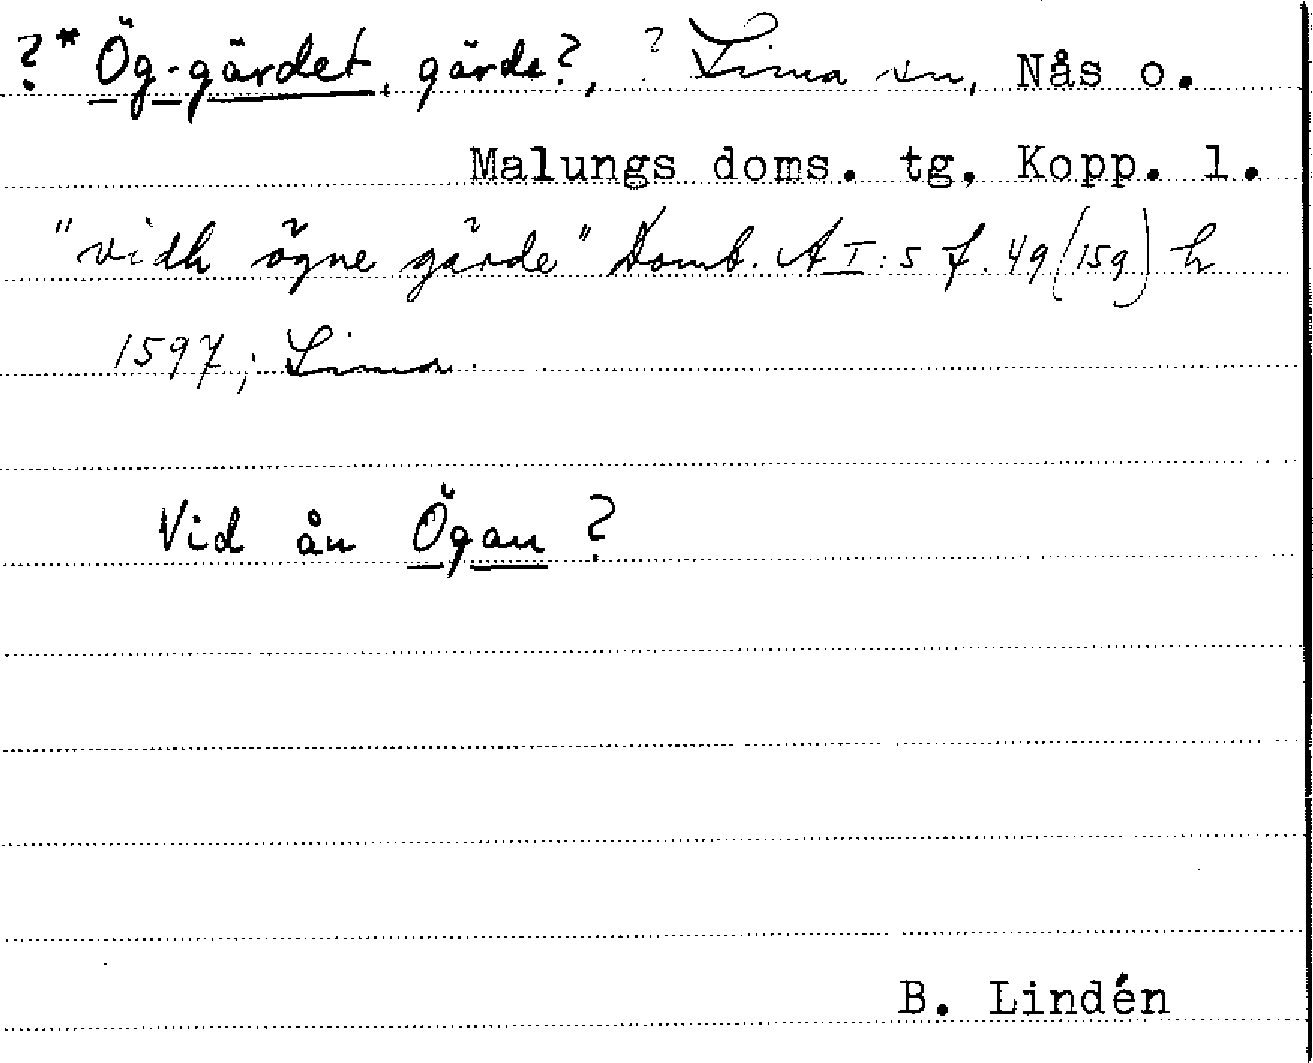 ?* Ög-gärdet, gärde?, ? Lima sn, Nås o.
Malungs doms. tg. Kopp. l.
"vidh ögne gärde" Domb. A I:5 f. 49 (159) h
1597; Lima.
Vid ån Ögan ?
B. Lindén